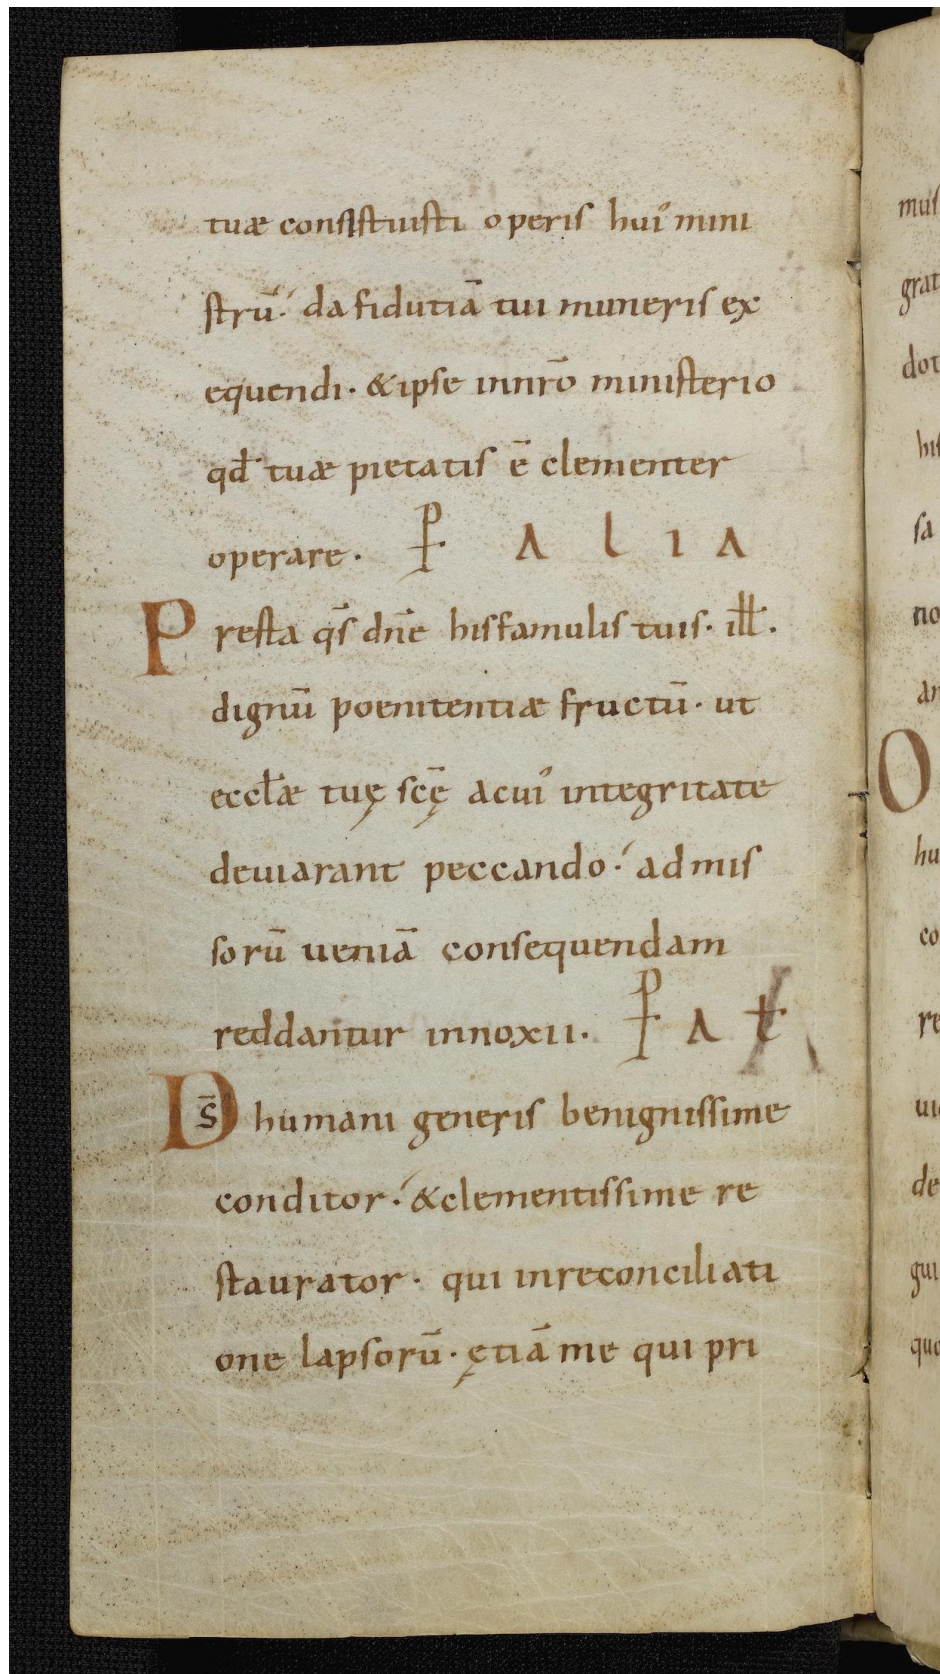 tuæ consistuisti operis huiꝰ mini
strū· da fidutiā tui muneris ex
equendi· & ipse in nr̄o ministerio
qđ tuæ pietatis ē clementer
operare· P A L I A
Presta qs̄ dn̄e his famulis tuis· ill̄·
dignū poenitentiæ fructū· ut
eccłæ tuę scę̄ a cuiꝰ integritate
deuiarant peccando· admis
sorū ueniā consequendam
reddantur innoxii· P A t
Ds̄ humani generis benignissime
conditor· & clementissime re
staurator· qui in reconciliati
one lapsorū· ętiā me qui pri
mus
grat
dot
his
sa
no
an
O
hu
co
re
uic
de
gui
quo